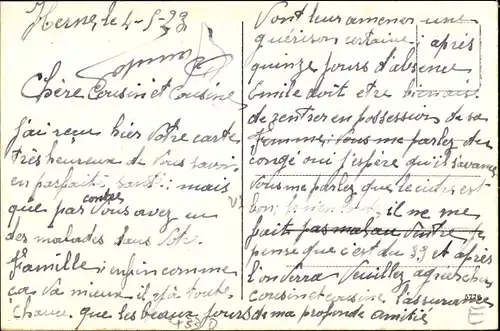 Herne, le 4-5-23
Chère Cousin et Cousine
j'ai reçu hier votre carte
très heureux de vous savoir
en parfait santé; mais
contre
que par vous avez eu
des malades dans votre
Famille; enfin comme
ça va mieux, il y a toute
Chance, que les beaux jours
vont leur amener une
guérison certaine; après
quinze jours d'absence
Emile doit être bien aise
de rentrer en possession de sa
Femme; vous me parlez du
congé oui j'espère qu'il s'avance
vous me parlez que le cuir est
bon; il ne me
fait pas mal au ventre je
pense que c'est du 39 et après
l'on verra Veuillez agréer cher
cousin et cousine l'assurance
de ma profonde amitié
E